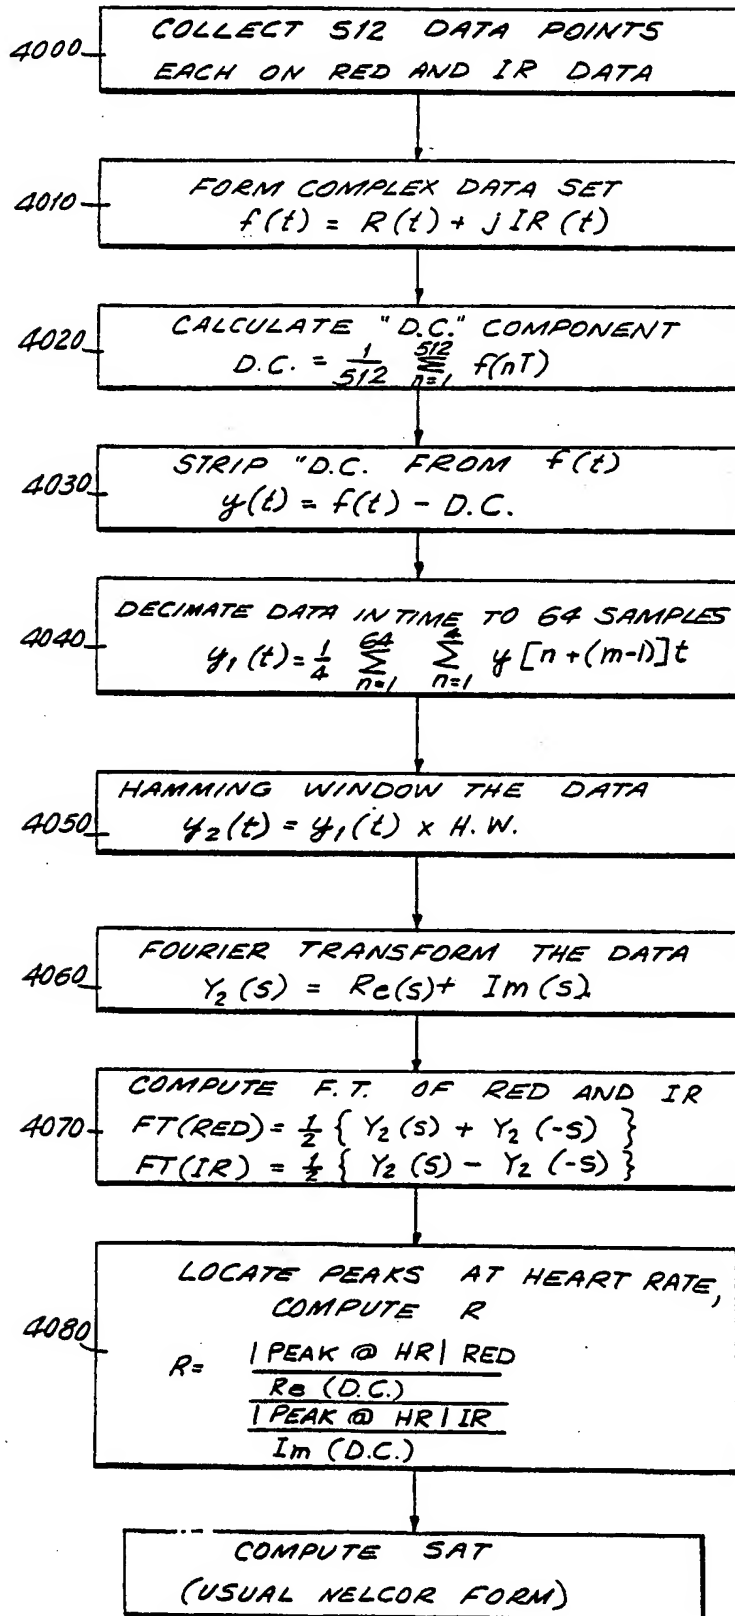 4000
COLLECT 512 DATA POINTS
EACH ON RED AND IR DATA
4010
FORM COMPLEX DATA SET
f(t) = R(t) + jIR(t)
4020
CALCULATE "D.C." COMPONENT
D.C. = 1/512 512 Σ n=1 f(nT)
4030
STRIP "D.C. FROM f(t)
y(t) = f(t) - D.C.
4040
DECIMATE DATA IN TIME TO 64 SAMPLES
y₁(t) = 1/4 64 Σ n=1 4 Σ n=1 y[n+(m-1)]t
4050
HAMMING WINDOW THE DATA
y₂(t) = y₁(t) x H.W.
4060
FOURIER TRANSFORM THE DATA
Y₂(s) = Re(s)+ Im(s)
4070
COMPUTE F.T. OF RED AND IR
FT(RED) = 1/2 { Y₂(s) + Y₂(-s) }
FT(IR) = 1/2 { Y₂(s) - Y₂(-s) }
4080
LOCATE PEAKS AT HEART RATE,
COMPUTE R
R=
|PEAK @ HR| RED
Re (D.C.)
|PEAK @ HR| IR
Im (D.C.)
COMPUTE SAT
(USUAL NELCOR FORM)